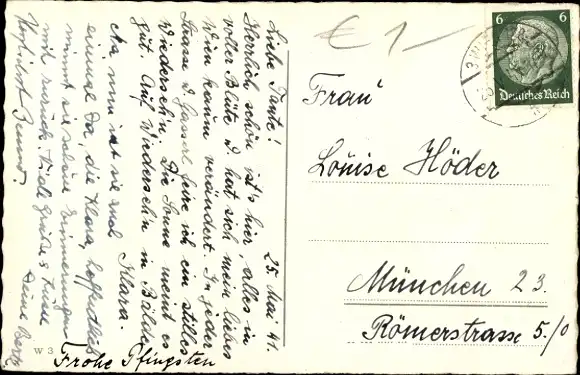 25. Mai 41.
Liebe Tante!
Herrlich schön ist's hier, alles in
voller Blüte u hat sich mein liebes
Wien kaum verändert. In jeder
Strasse u Gasserl feire ich ein stilles
Wiedersehn. Die Sonne meint es
gut. Auf Wiedersehn in Bälde
Klara.
Na, nun ist sie mal
einmal da, die Klara, hoffentlich
nimmt sie schöne Erinnerungen
mit zurück. Viele Grüße u Küsse
Deine
Frohe Pfingsten
W 3
€ 1-
6 6
Deutsches Reich
Frau
Louise Höder
München 23.
Römerstrasse 5/0